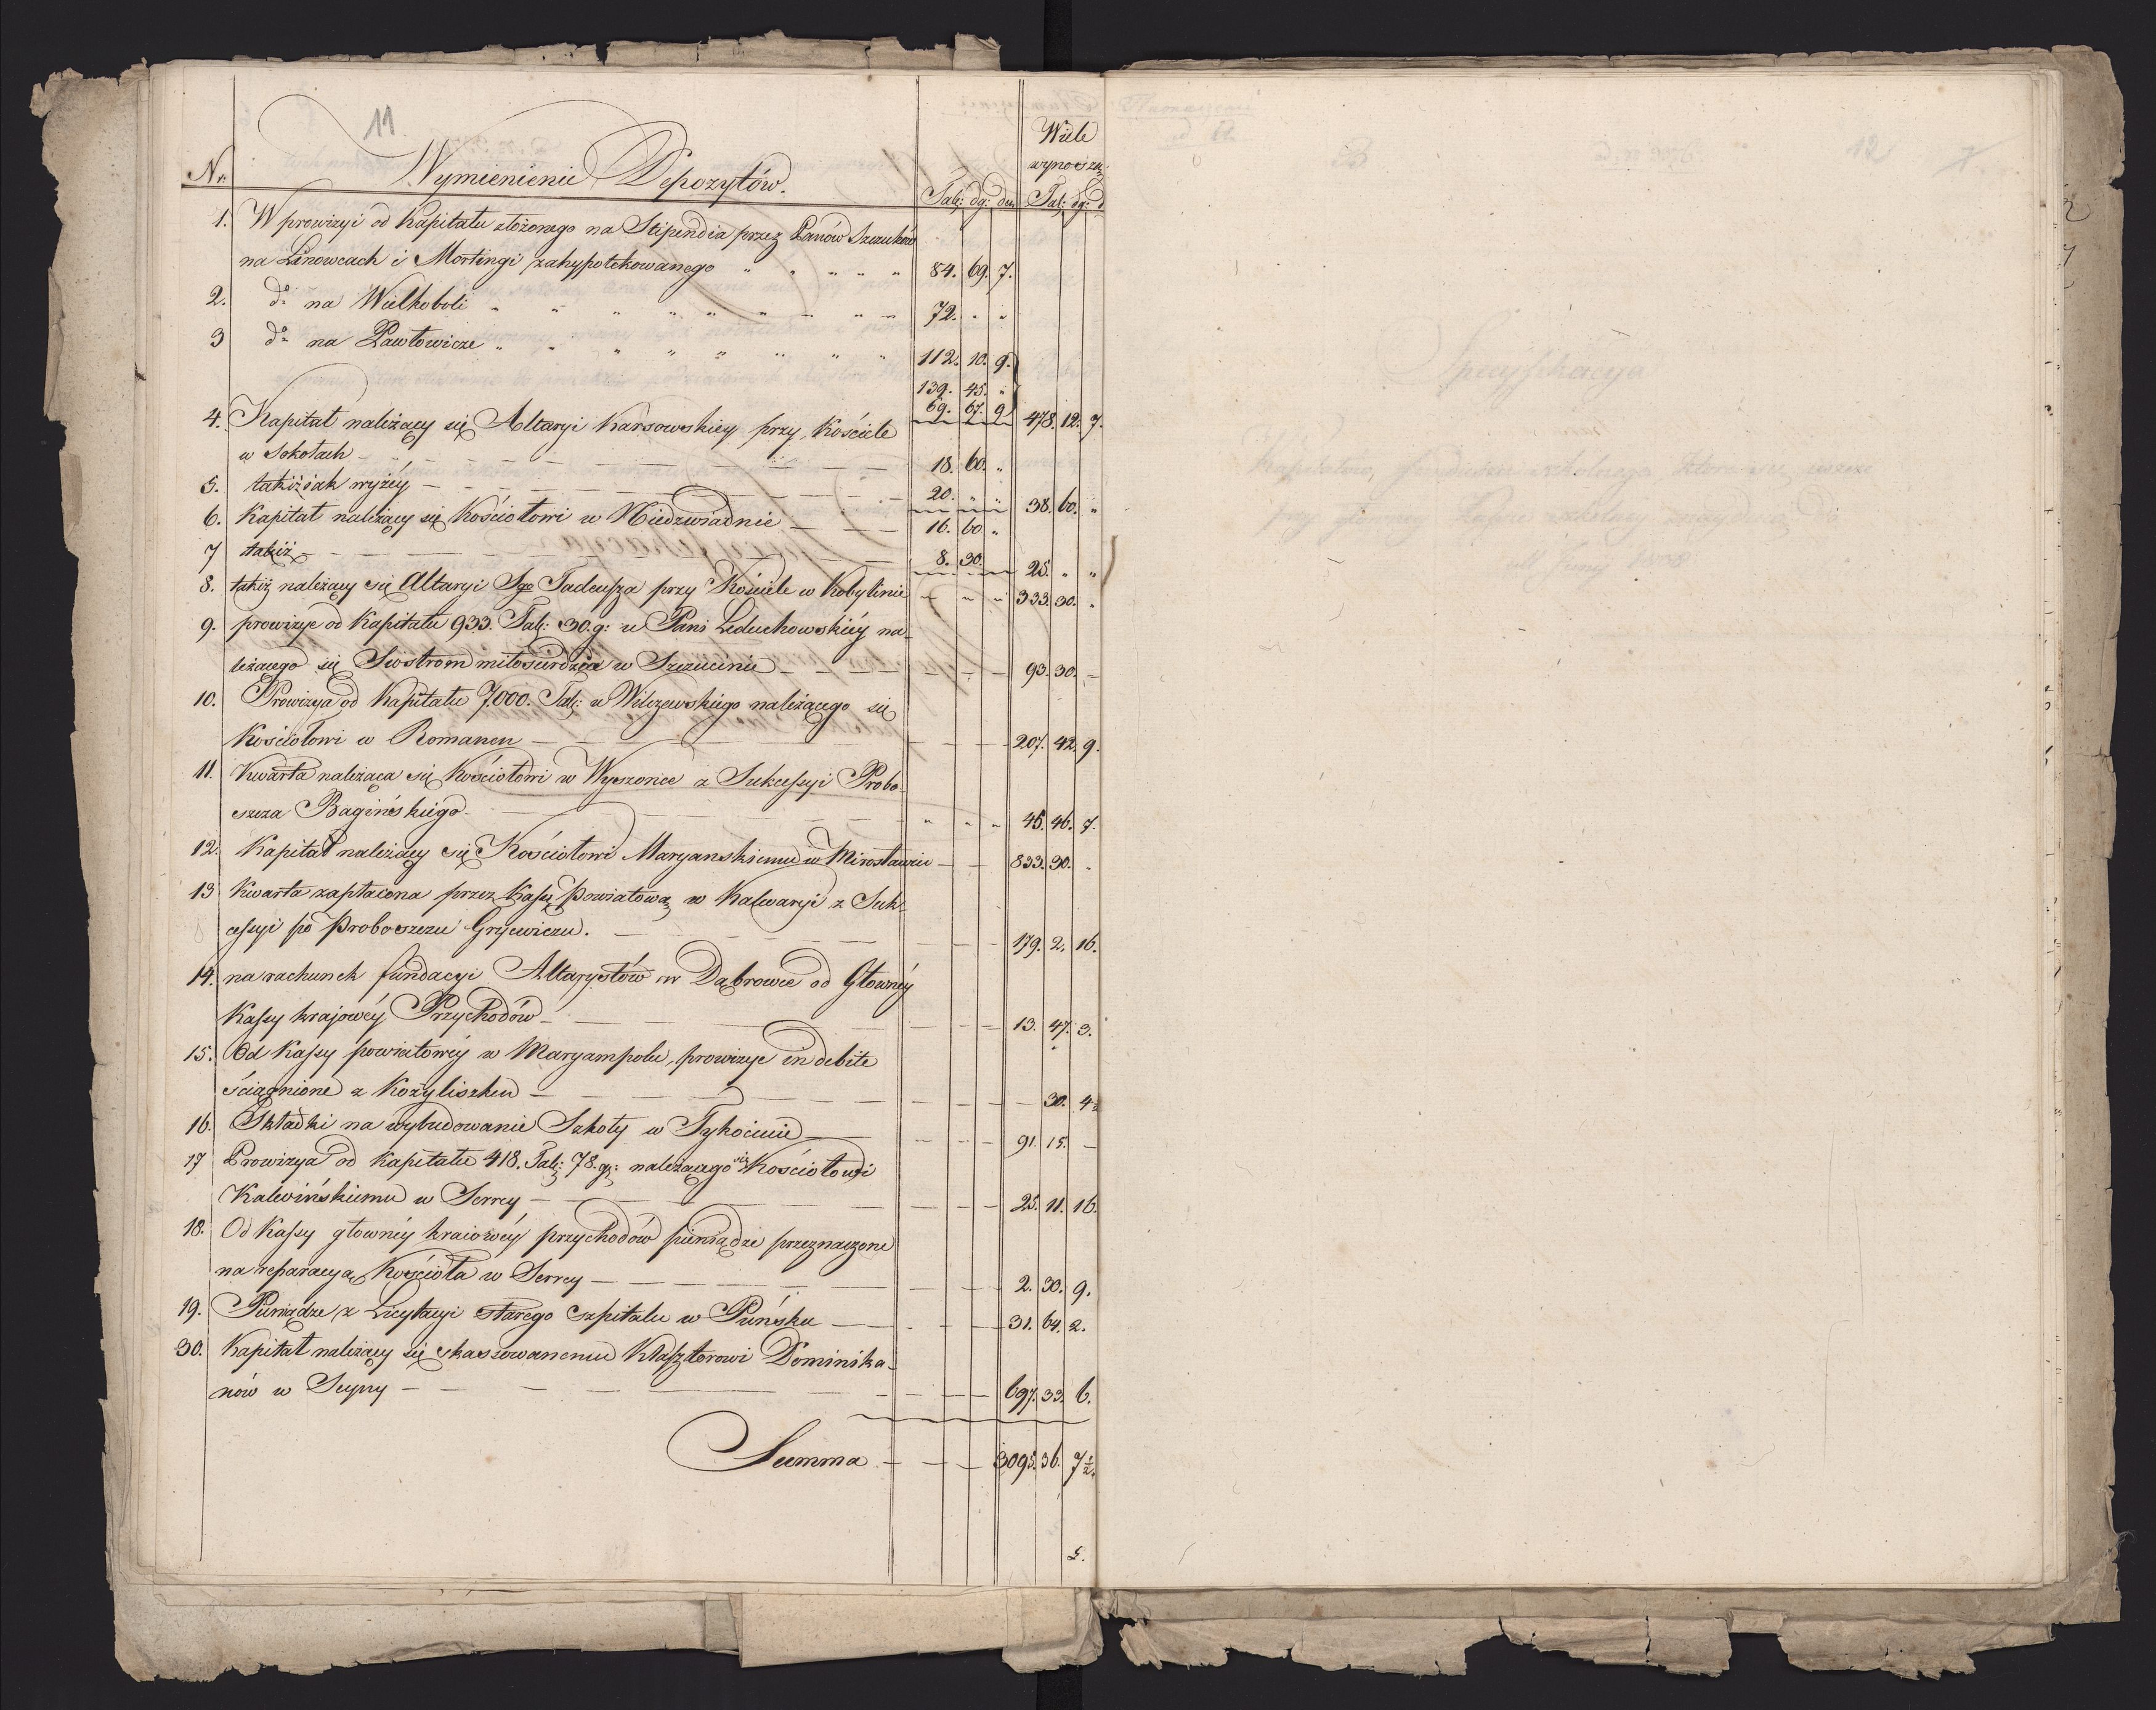 11
Wiele
wynoszą
Nr. Wymienienie Depozytów. Tal: dg: den Tal: dg: d
1. W prowizyi od Kapitału złożonego na Stipendia przez Panów Szczuków
na Linowcach i Mortingi zahypotekowanego " " " " " 84. 69. 7.
2. do na Wielkoboli " " " " " " " " 72. " "
3 do na Pawłowicze " " " " " " " " 112. 10. 9.
139. 45. "
69. 67. 9 478. 12. 7.
4. Kapitał należący się Altaryi Karsowskiey przy Kościele
w Sokołach 18. 60. "
5. takiż jak wyżéy 20. " " 38. 60. "
6. Kapitał należący się Kościołowi w Niedzwiadnie 16. 60 "
7 takiż 8. 30. 25. " "
8. takiż należący się Altaryi Sgo Tadeusza przy Kościele w Kobylinie 333. 30. "
9. prowizye od Kapitału 933. Tal: 30. g: u Pani Leduchowskiéy na-
leżącego się Siostrom miłosierdzia w Szczucinie 93. 30. –
10. Prowizya od Kapitału 7,000. Tal: u Wilczewskiego należącego się
Kościołowi w Romanen 207. 42. 9.
11. Kwarta należąca się Kościołowi w Wyszonce z Sukcessyi Probo-
szcza Bagińskiego 45. 46. 7.
12. Kapitał należący się Kościołowi Maryanskiemu w Mirosławiu 833. 30. .
13 Kwarta zapłacona przez Kassę Powiatową w Kalwaryi z Suk-
cessyi po Proboszczu Gryewiczu. 179. 2. 16.
14. na rachunek fundacyi Altarystów w Dąbrowce od Głownéy
Kassy krajowéy Przychodów 13. 47. 3.
15. Od Kassy powiatowéy w Maryampolu, prowizye indebite
ściągnione z Kozyliszken 30. 4½
16. Składki na wybudowanie Szkoły w Tykocinie 91. 15. –
17 Prowizya od Kapitału 418. Tal: 78. g: należącego się Kościołowi
Kalwińskiemu w Serrey 25. 11. 16.
18. Od Kassy głownéy kraiowéy przychodów pieniądze przeznaczone
na reparacyą Kościoła w Serrey 2. 30. 9.
19. Pieniądze z Licytacyi starego szpitalu w Puńsku 31. 64. 2.
30. Kapitał należący się skassowanemu Klasztorowi Dominika-
nów w Seyny 697. 33. 6.
Summa 3095. 36. 7½.
12
Specyfikacya